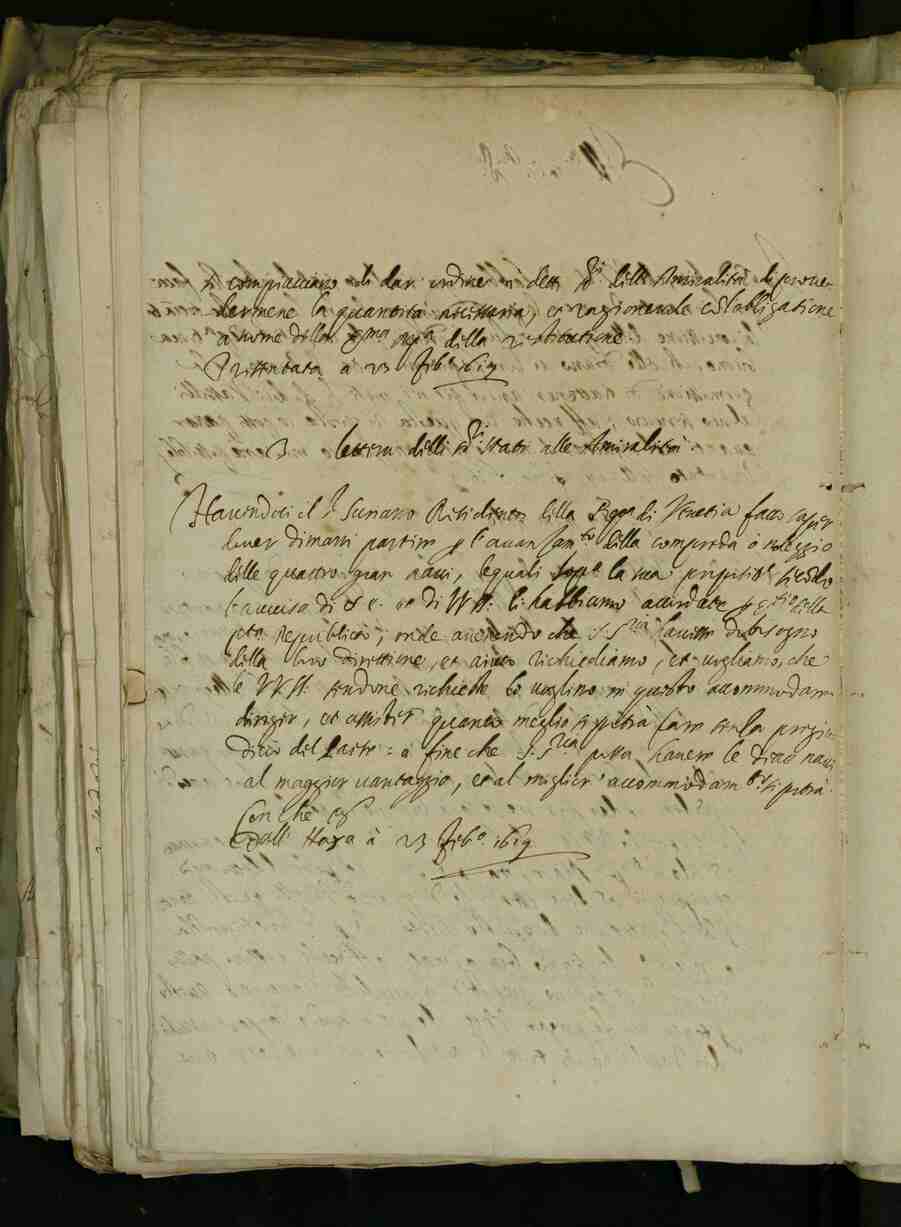 si compiacciano di dar ordine a detti SSri delle Amiralità di prove-
dermene la quantità necessaria, et ragionevole con l'obligatione
a nome della Sma Repca della restitutione.
Presentata à 23 Febo 1619
3 lettera delli SSri Stati alle Amiralità
Havendoci il Sr Suriano Residente della Repca di Venetia fatto saper
haver dimani partire per l'avanzamto della compreda ò noleggio
delle quattro gran navi, le quali la sua propositne
l'advviso di di VV SS. li habbiamo accordate per della
Republica; onde havendo che S. Sria havesse di bisogno
della loro direttione, et aiuto richiediamo, et vogliamo, che
le VV SS. sendone richieste lo voglino in questo accommodare
diriger, et assister quanto meglio si potrà fare senza pregiu-
dicio del Paese: à fine che S. Sria possa havere le dette navi
al maggior vantaggio, et al miglior accommodam si potrà.
Con che &c
Dall' Haya à 23 Febo 1619